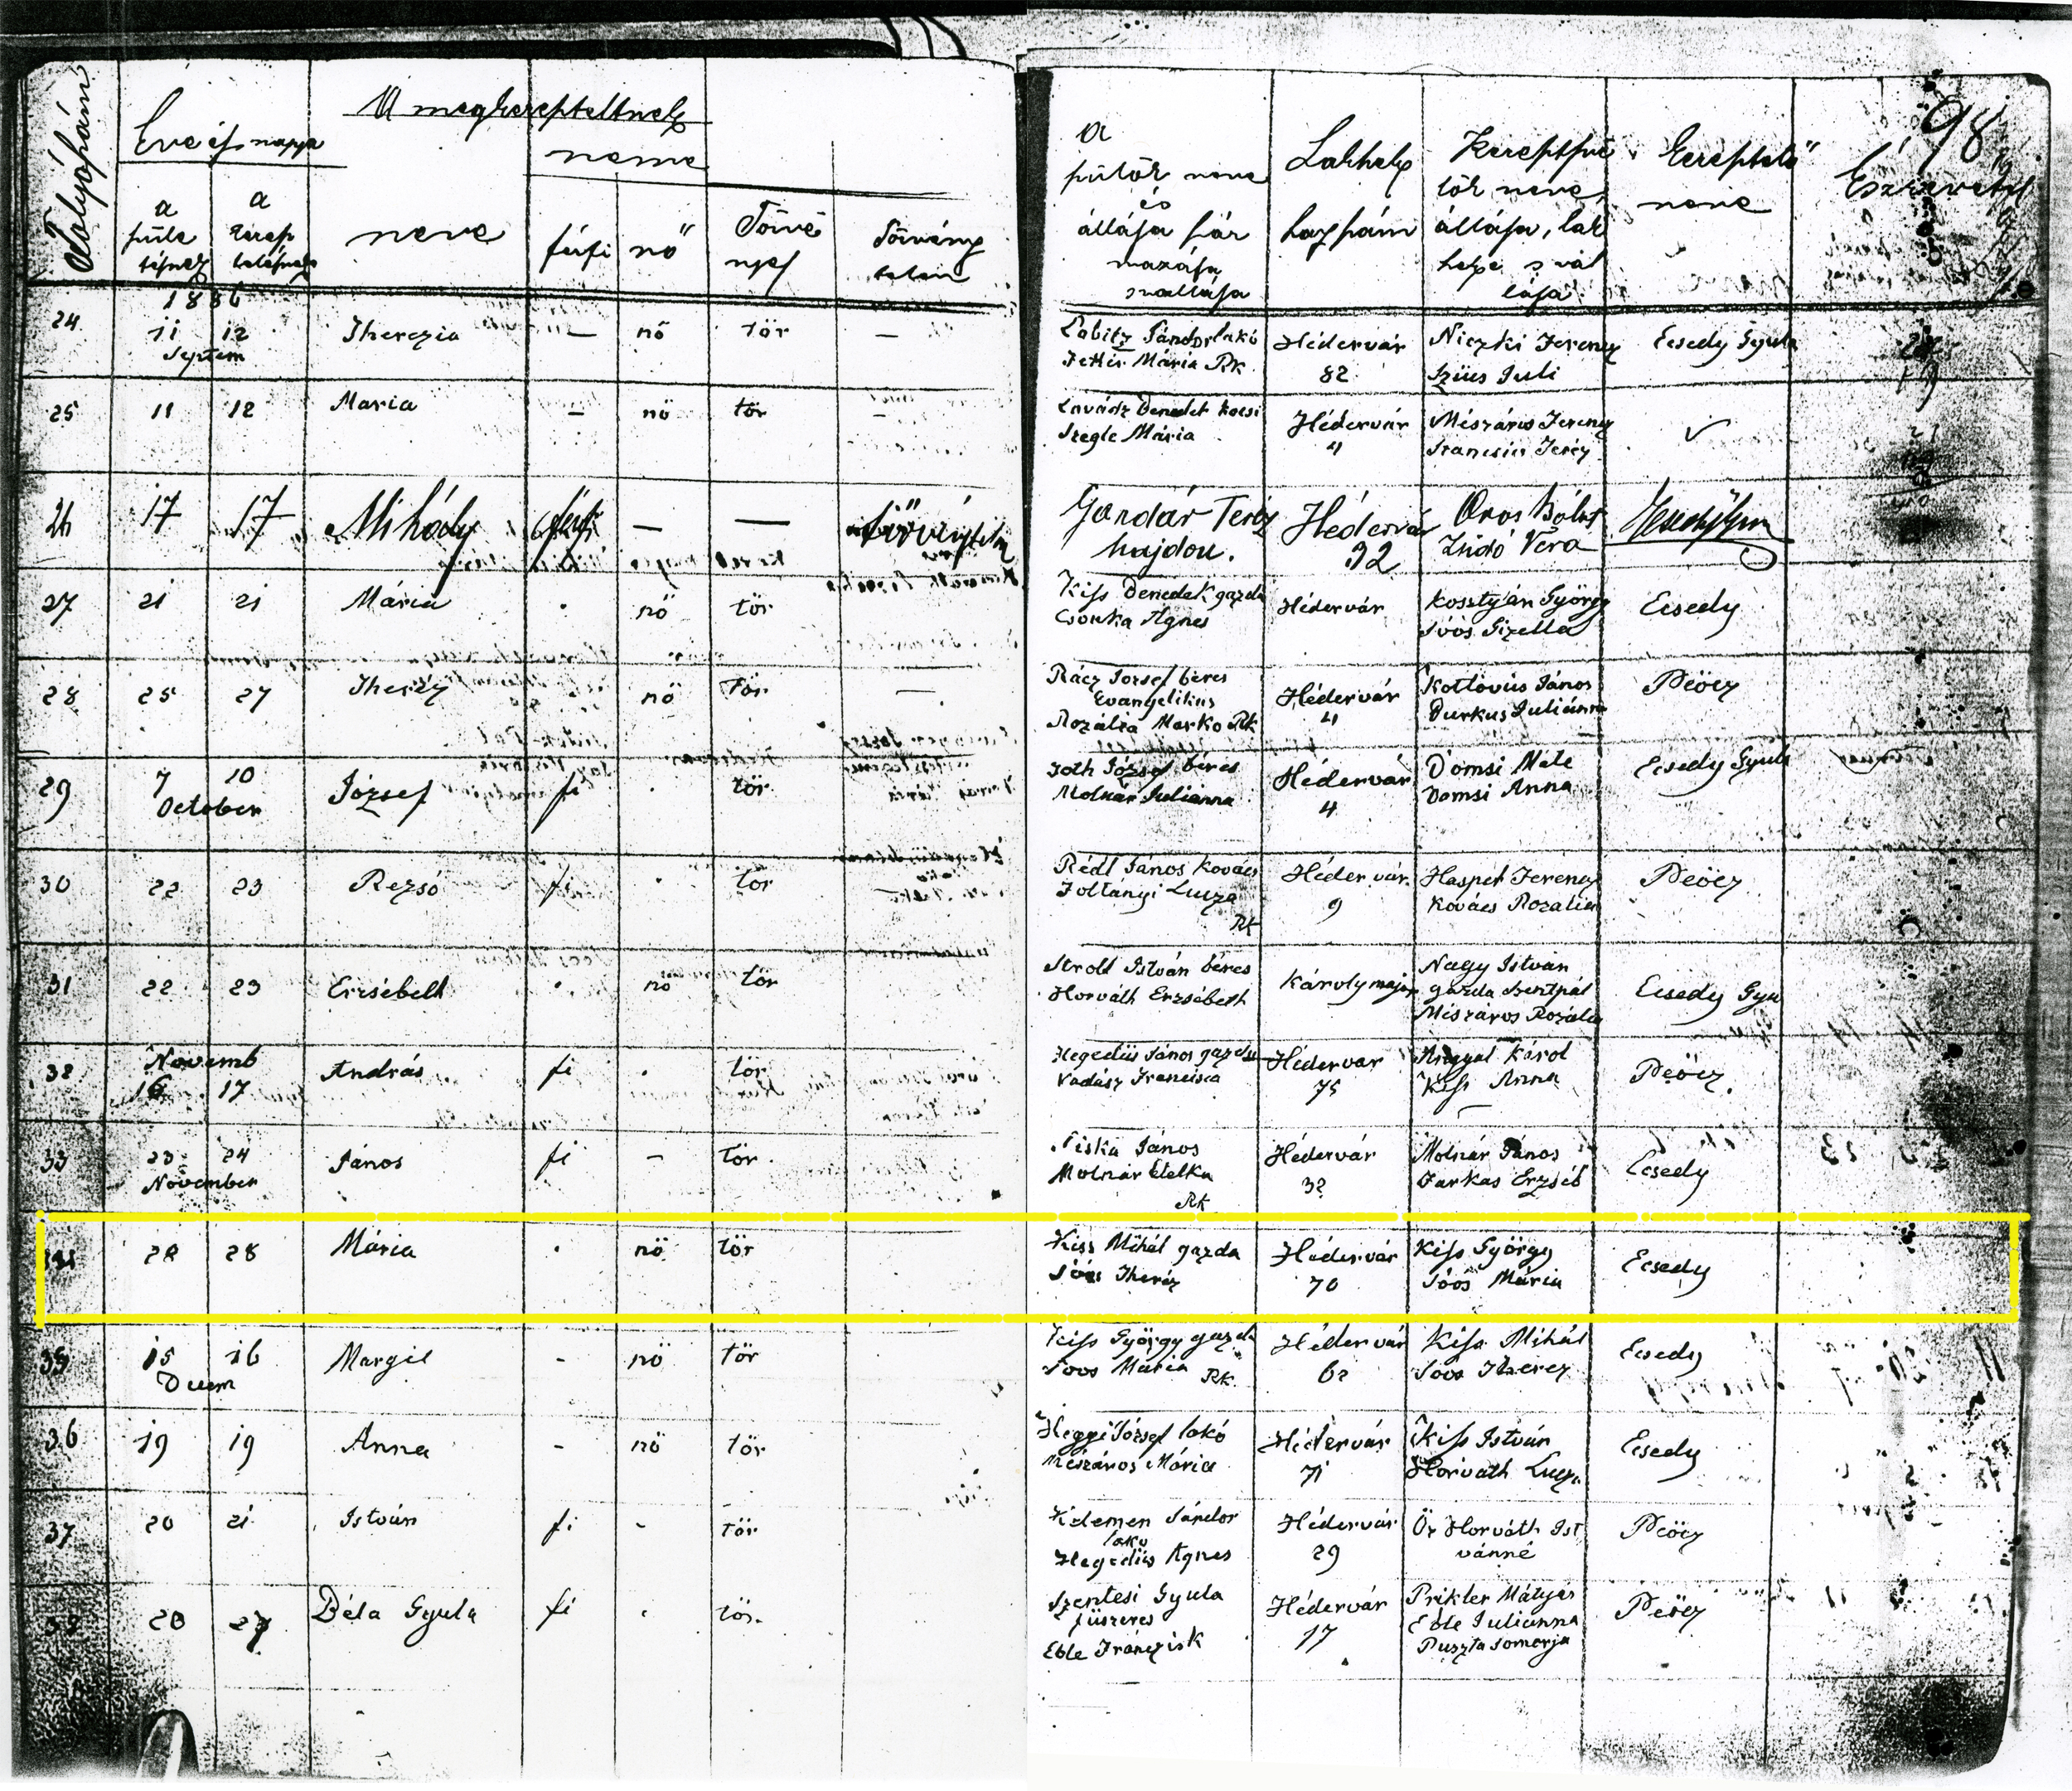 98
Folyószám
Éve és napja
A megkereszteltnek
a szüle tésnek
a keresz telésnek
neve
neme
férfi
nő
Törvé nyes
Törvény telen
a szülők neve és állása szár mazása s vallása
Lakhely házszám
Keresztszü lők neve, állása, lak helye s val lása
Keresztelő neve
Észrevétel
1886
24 11 12 Septem Therezia — nő tör — Sándor lakó Mária Rk Hédervár 82 Niczki Ferencz Szüts Juli Ecsedy Gyula
25 11 12 Maria – nő tör – Benedek kocsi Szegle Mária Hédervár 4 Mészáros Ferencz Francisca Teréz ✓
26 17 17 Mihály férfi — — törvénytelen Gondár Teréz hajdon. Hédervár 92 Oros Bálint Zsidó Vera
27 21 21 Mária . nő tör Kiss Benedek gazda Csonka Ágnes Hédervár Kosztyán György Soós Gizella Ecsedy
28 25 27 Theréz nő Tör — Rácz József béres Evangelikus Rozália Marko Rk Hédervár 4 Kottovits János Burkus Julianna Peöcz
29 7 10 October József fi . tör Toth József béres Molnár Julianna Hédervár 4 Domsi Mate Domsi Anna Ecsedy Gyula
30 22 23 Rezsó fi . tör Rédl János kovács Zoltányi Lucza Rk Hédervár 9 Haspel Ferencz Kovács Rozalia Peöcz
31 22 23 Erzsébeth . nő tör Stroll István béres Horváth Erzsébeth Károly major Nagy István gazda Szentpál Mészáros Rozalia Ecsedy Gyu
32 Novemb 16 17 András fi . tör Hegedüs János gazda Vadász Francisca Hédervar 75 Angyal Károl Kiss Anna Peöcz.
33 23 24 November János fi – tör Piska János Molnár Etelka Rk Hédervár 32 Molnár János Farkas Erzséb Ecsedy
34 28 28 Mária . nő tör Kiss Mihál gazda Sóos Theréz Hédervár 70 Kiss György Sóós Mária Ecsedy
35 15 16 Decem Margit – nő tör Kiss György gazda Soos Mária Rk Hédervár 62 Kiss Mihál Soos Therez Ecsedy
36 19 19 Anna – nő tör Hegyi József lakó Mészáros Mária Hédervár 71 Kiss István Horváth Lucza Ecsedy
37 20 21 István fi – tör Kelemen Sándor lakó Hegedüs Ágnes Hédervár 29 Öz Horváth Ist vánné Peöcz
38 20 27 Béla Gyula fi . tör. Szentesi Gyula füszeres Eble Franczisk Hédervár 17 Prikler Mátyás Eble Julianna Puszta Somorja Peöcz